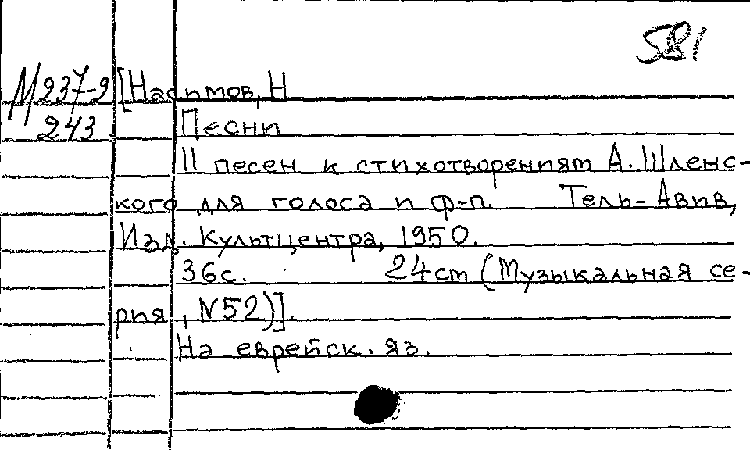 581
М237-9 [Насимов, Н
243 Песни
11 песен к стихотворениям А. Шленс-
кого для голоса и ф-п. Тель-Авив,
Изд. Культцентра, 1950.
36с. 24cm (Музыкальная се-
рия, N52)].
На еврейск. яз.